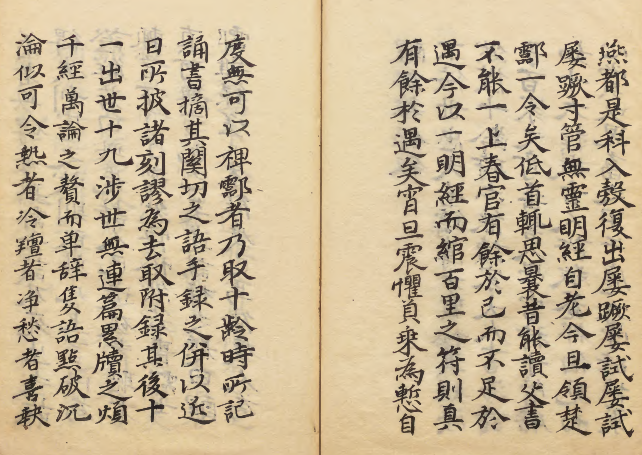 燕都是科入彀復出屡蹶屡試屡試
屡蹶寸管無靈明經自老今且領楚
酃一令矣低首輒思曩昔能讀父書
不能一上春官有餘於己而不足於
遇今以一明經而綰百里之符則真
有餘於遇矣宵旦震懼負乘為慙自
度無可以裨酃者乃取十齡時所記
誦書摘其関切之語手録之併以近
日所披諸刻謬為去取附録其後十
一出世十九涉世無連篇累牘之煩
千經萬論之贅而单辞隻語點破沉
淪似可令熱者冷羶者净愁者喜